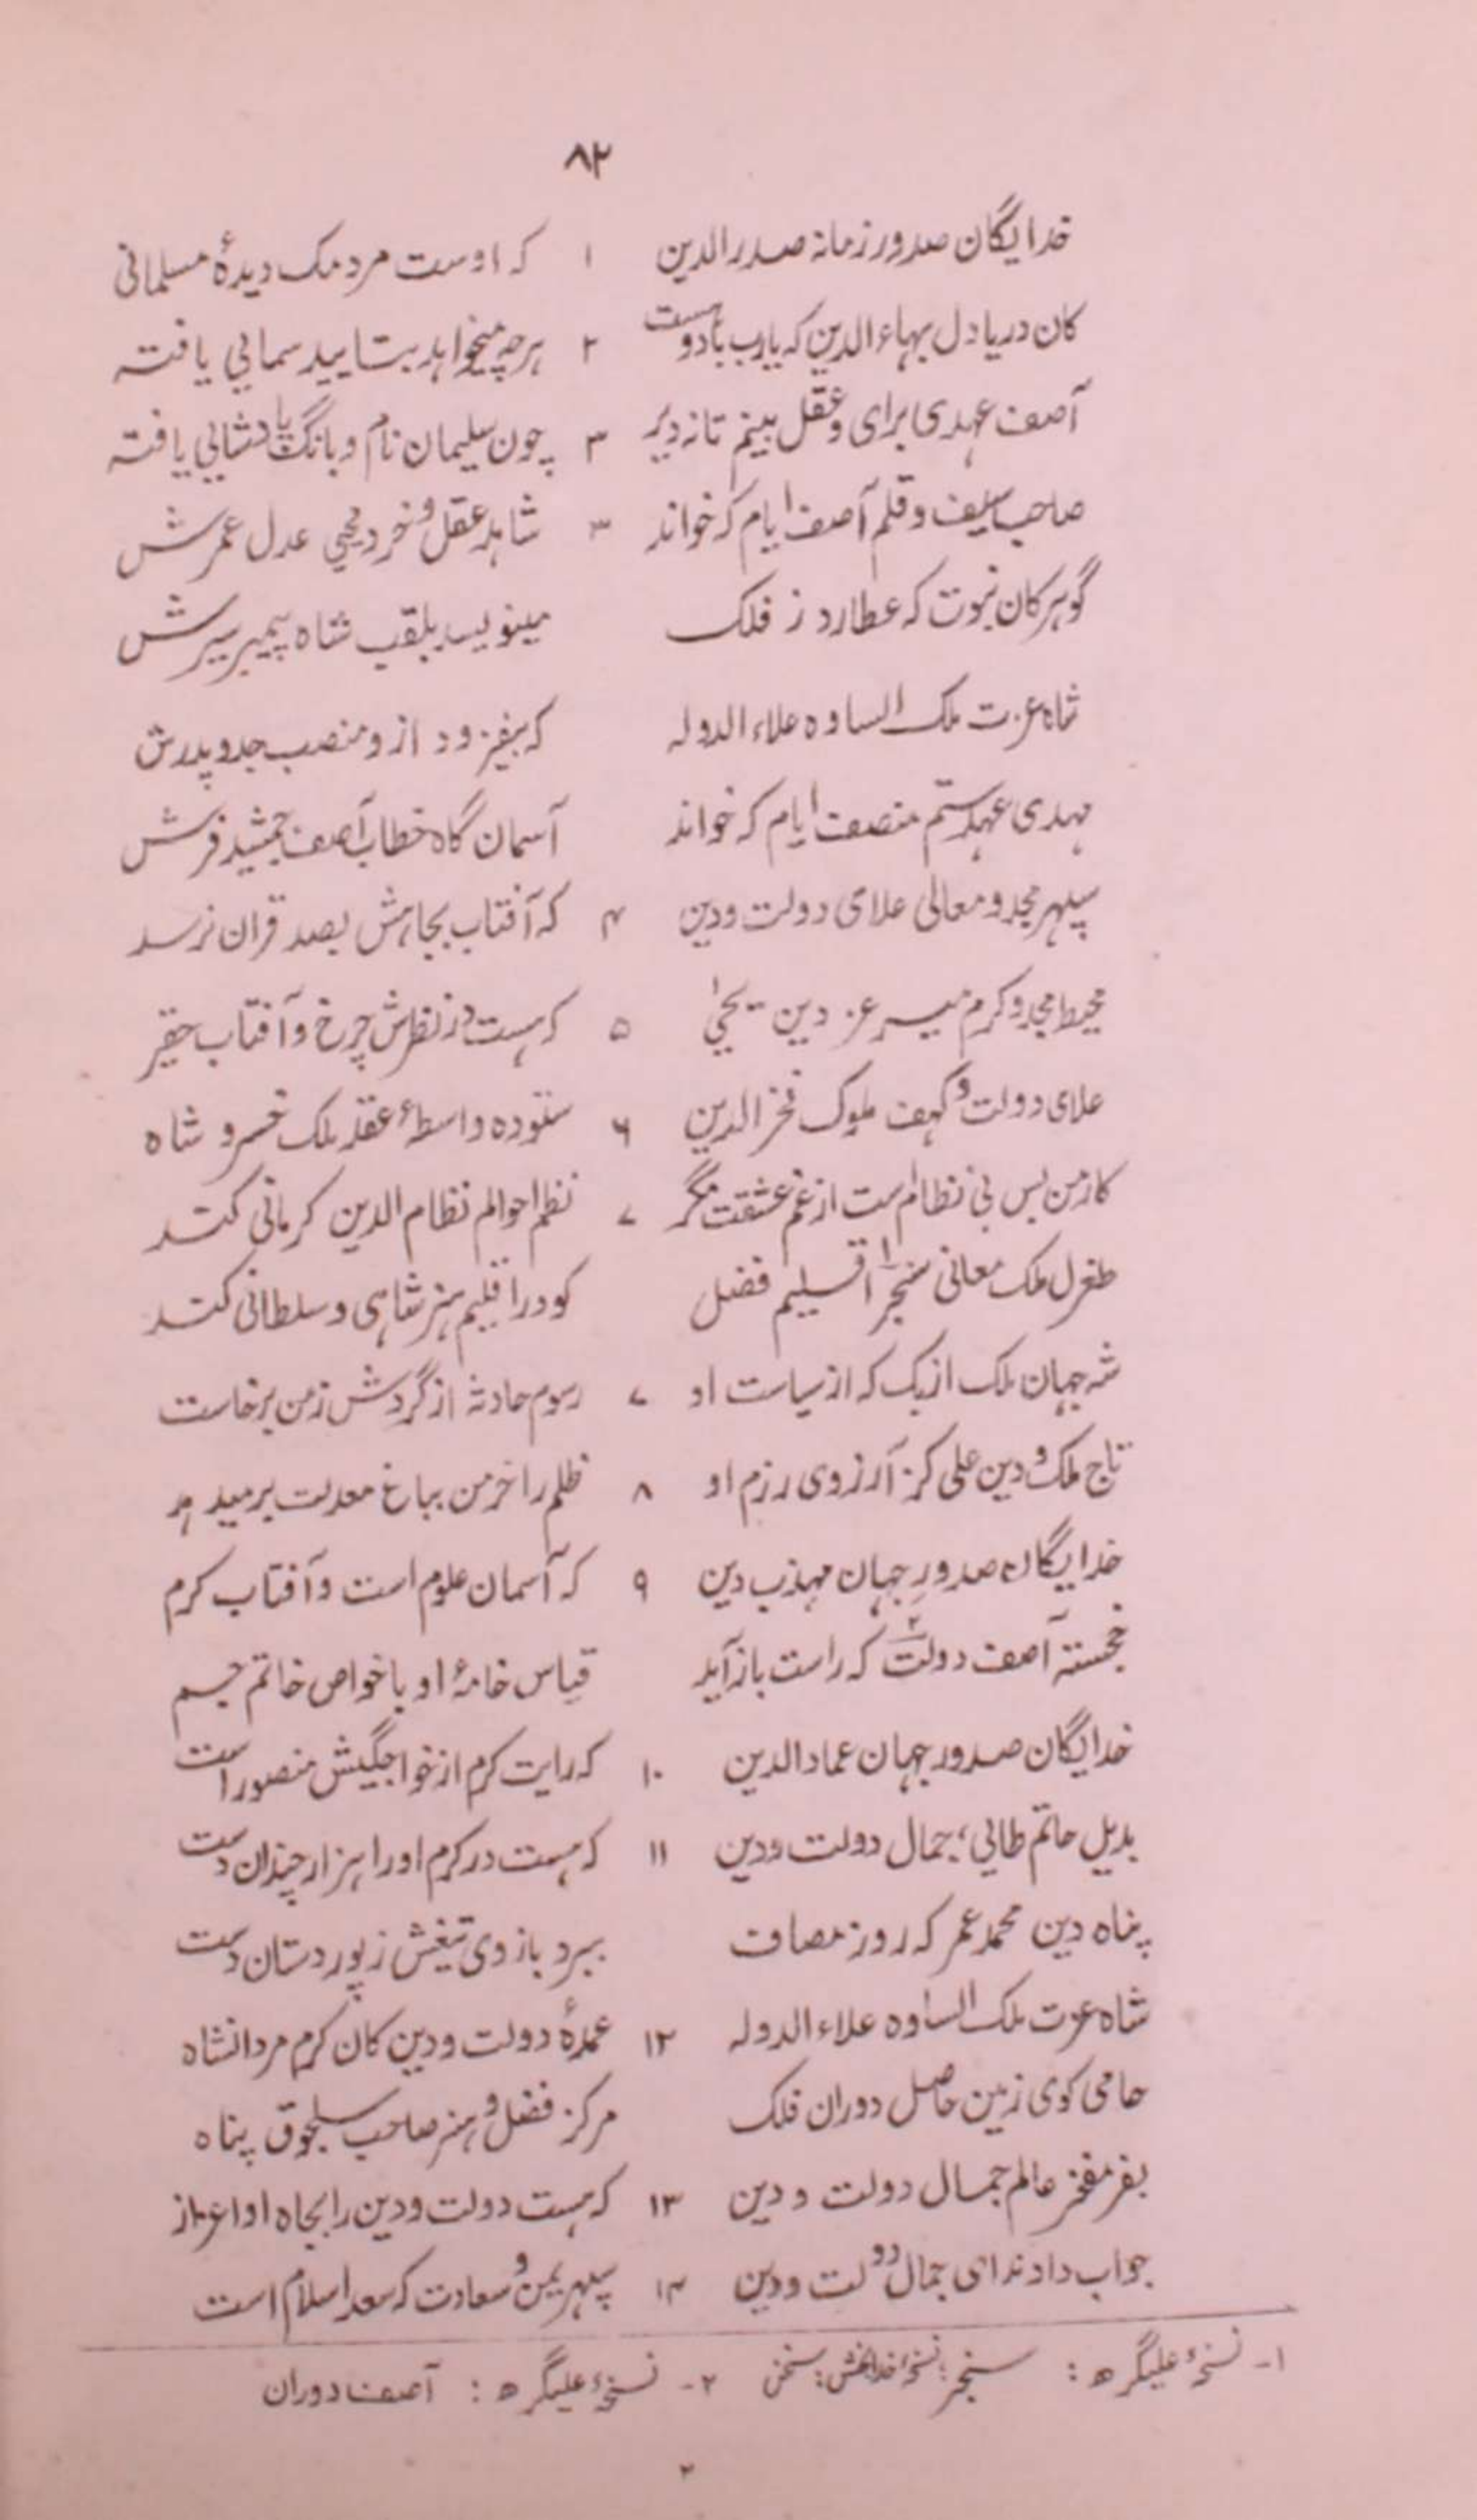 ۸۲
خدایگان صدور زمانه صدرالدین ۱ که اوست مردمک دیدهٔ مسلمانی
کان دریا دل بهاء الدین که یارب بادوست ۲ هرچه میخواهد بتایید سمایی یافته
آصف عهدی برای و عقل بینم تا نه دیر ۳ چون سلیمان نام و بانگ پادشایی یافته
صاحب سیف و قلم آصف ایام که خواند ۳ شاهد عقل و خرد محیی عدل عمرش
گوهر کان نبوت که عطارد ز فلک مینویسد بلقب شاه پیمبر سیرش
شاه عزت ملک الساوه علاء الدوله که بیفزود ازو منصب جد و پدرش
مهدی عهد ستم منصف ایام که خواند آسمان گاه خطاب آصف جمشید فرش
سپهر مجد و معالی علای دولت و دین ۴ که آفتاب بجاهش بصد قران نرسد
محیط مجد و کرم میر عز دین یحیٰی ۵ که هست در نظرش چرخ و آفتاب حقیر
علای دولت و کهف ملوک فخرالدین ۶ ستوده واسطهٔ عقد ملک خسرو شاه
کار من بس بی نظام است از غم عشقت مگر ۷ نظم احوالم نظام الدین کرمانی کند
طغرل ملک معانی سنجر۱ اقلیم فضل کو در اقلیم هنر شاهی و سلطانی کند
شه جهان ملک ازبک که از سیاست او ۷ رسوم حادثه از گردش زمن برخاست
تاج ملک و دین علی کز آرزوی رزم او ۸ ظلم را خرمن بباغ معدلت بر میدهد
خدایگان صدور جهان مهذب دین ۹ که آسمان علوم است و آفتاب کرم
خجسته آصف دولت۲ که راست باز آید قیاس خامهٔ او با خواص خاتم جم
خدایگان صدور جهان عماد الدین ۱۰ که رایت کرم از خواجگیش منصور است
بدیل حاتم طایی، جمال دولت و دین ۱۱ که هست در کرم او را هزار چندان دست
پناه دین محمد عمر که روز مصاف ببرد بازوی تیغش ز پور دستان دست
شاه عزت ملک الساوه علاء الدوله ۱۲ عمدهٔ دولت و دین کان کرم مردانشاه
حامی کوی زمین حاصل دوران فلک مرکز فضل و هنر صاحب سلجوق پناه
بفر مفخر عالم جمال دولت و دین ۱۳ که هست دولت و دین را بجاه او اعزاز
جواب داد ندای جمال دولت و دین ۱۴ سپهر یمن و سعادت که سعد اسلام است
۱- نسخهٔ علیگره : سنجر؛ نسخهٔ خدابخش: سخن ۲- نسخهٔ علیگره : آصف دوران